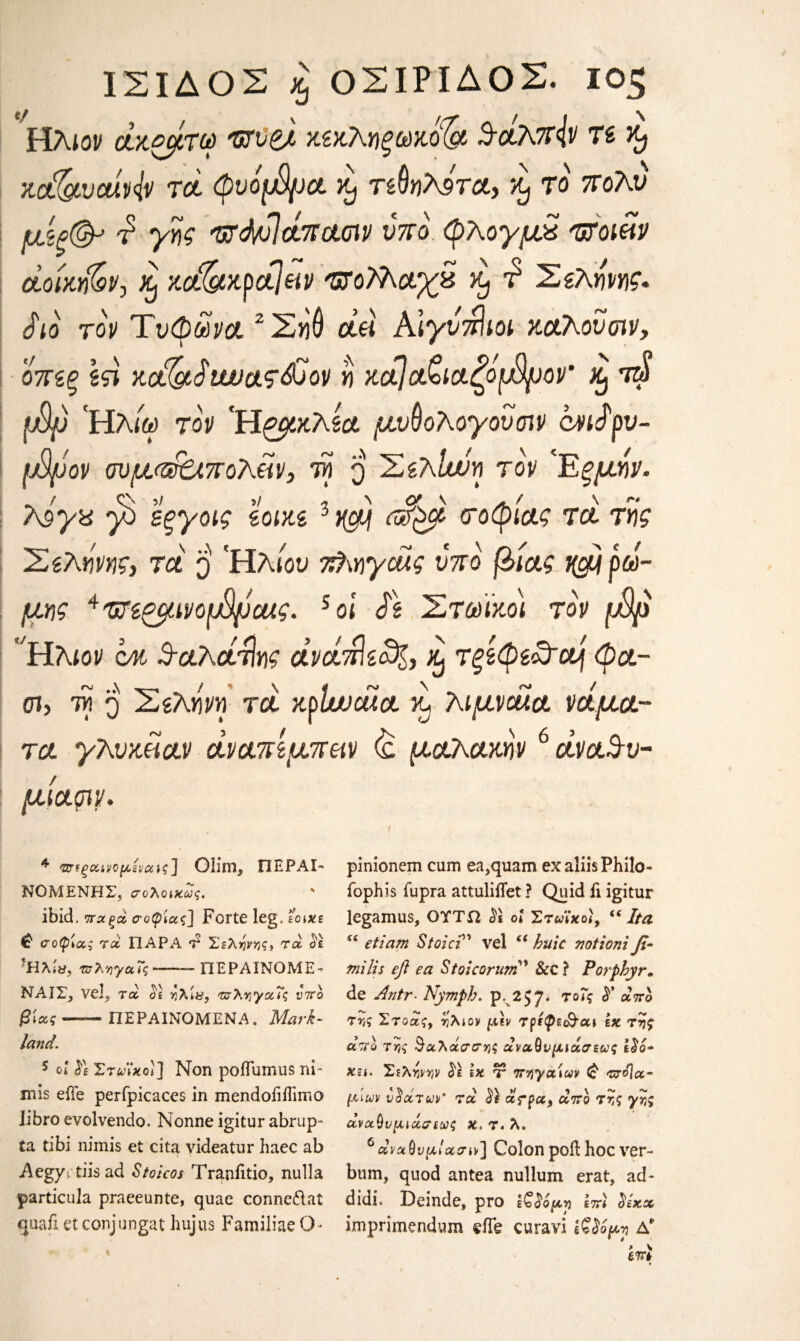 ΙΣΙΔΟΣ ϗ ΟΣΙΡΙΔΟΣ. 105
Ἥλιον ἀκράτῳ πυρὶ κεκληρωκότα θάλπειν τε ϗ
καταυαίνειν τὰ φυόμενα ϗ τεθηλότα, ϗ τὸ πολὺ
μέρος τ γῆς παντάπασιν ὑπὸ φλογμοῦ ποιεῖν
ἀοίκητον, ϗ κατακρατεῖν πολλαχοῦ ϗ τ Σελήνης.
διὸ τὸν Τυφῶνα ² Σὴθ ἀεὶ Αἰγύπτιοι καλοῦσιν,
ὅπερ ἐστὶ καταδυναστεῦον ἢ καταβιαζόμενον· ϗ τῷ
μὲν Ἡλίῳ τὸν Ἡρακλέα μυθολογοῦσιν ἐνιδρυ-
μένον συμπεριπολεῖν, τῇ δὲ Σελήνῃ τὸν Ἑρμῆν.
λόγου γὸ ἔργοις ἔοικε ³ καὶ παρὰ σοφίας τὰ τῆς
Σελήνης, τὰ δὲ Ἡλίου πληγαῖς ὑπὸ βίας καὶ ῥώ-
μης ⁴ περαινομέναις. ⁵ οἱ δὲ Στωϊκοὶ τὸν μὲν
Ἥλιον ἐκ θαλάττης ἀνάπτεσθαι, ϗ τρέφεσθαι φα-
σι, τῇ δὲ Σελήνῃ τὰ κρηναῖα ϗ λιμναῖα νάμα-
τα γλυκεῖαν ἀναπέμπειν ϗ μαλακὴν ⁶ ἀναθυ-
μίασιν.
⁴ περαινομέναις] Olim, ΠΕΡΑΙ-
ΝΟΜΕΝΗΣ, σολοικῶς.
ibid. παρὰ σοφίας] Forte leg. ἔοικε
ϗ σοφίας τὰ ΠΑΡΑ τ Σελήνης, τὰ δὲ
Ἡλίου, πληγαῖς —— ΠΕΡΑΙΝΟΜΕ-
ΝΑΙΣ, vel, τὰ δὲ ἡλίου, πληγαῖς ὑπὸ
βίας —— ΠΕΡΑΙΝΟΜΕΝΑ. Mark-
land.
⁵ οἱ δὲ Στωϊκοὶ] Non possumus ni-
mis esse perspicaces in mendosissimo
libro evolvendo. Nonne igitur abrup-
ta tibi nimis et cita videatur haec ab
Aegyptiis ad Stoicos Transitio, nulla
particula praeeunte, quae connectat
quasi et conjungat hujus Familiae O-
pinionem cum ea, quam ex aliis Philo-
sophis supra attulisset? Quid si igitur
legamus, ΟΥΤΩ δὲ οἱ Στωϊκοὶ, “ Ita
“ etiam Stoici” vel “ huic notioni si-
milis est ea Stoicorum” &c? Porphyr.
de Antr. Nymph. p. 257. τοῖς δ' ἀπὸ
τῆς Στοᾶς, ἥλιον μὲν τρέφεσθαι ἐκ τῆς
ἀπὸ τῆς θαλάσσης ἀναθυμιάσεως ἐδό-
κει. Σελήνην δὲ ἐκ τ πηγαίων ϗ ποτα-
μίων ὑδάτων· τὰ δὲ ἄστρα, ἀπὸ τῆς γῆς
ἀναθυμιάσεως κ. τ. λ.
⁶ ἀναθυμίασιν] Colon post hoc ver-
bum, quod antea nullum erat, ad-
didi. Deinde, pro ἑβδόμῃ ἐπὶ δέκα
imprimendum esse curavi ἑβδόμῃ Δ'
ἐπὶ